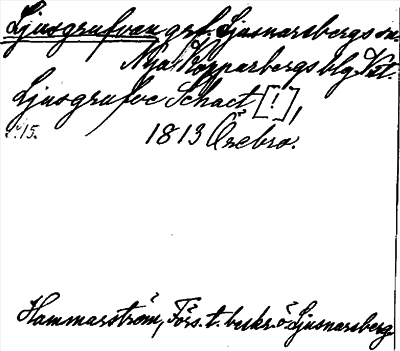 Ljusgrufvan grf. Ljusnarsbergs sn.
Nya Kopparbergs blg. Vst.
Ljusgrufve Schact [!],
s. 15. 1813 Örebro.
Hammarström, Förs. t. beskr. ö. Ljusnarsberg